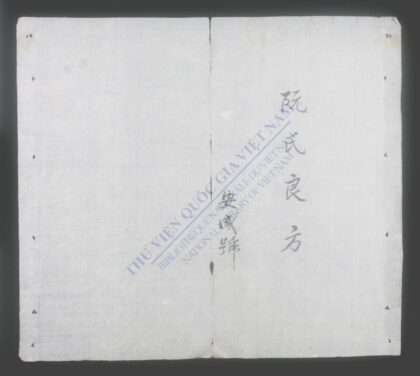 阮氏良方
安成號
THƯ VIỆN QUỐC GIA VIỆT NAM
BIBLIOTHÈQUE NATIONALE DU VIETNAM
NATIONAL LIBRARY OF VIETNAM